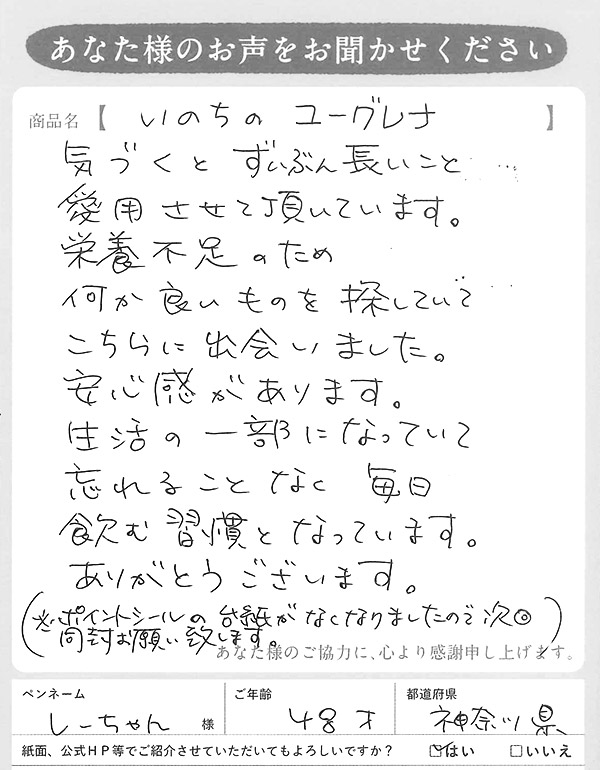 あなた様のお声をお聞かせください
商品名【 いのちの ユーグレナ 】
気づくと ずいぶん長いこと
愛用させて頂いています。
栄養不足のため
何か良いものを探していて
こちらに出会いました。
安心感があります。
生活の一部になっていて
忘れることなく 毎日
飲む習慣となっています。
ありがとうございます。
(※ポイントシールの台紙がなくなりましたので次回
同封お願い致します。)
あなた様のご協力に、心より感謝申し上げます。
ペンネーム ご年齢 都道府県
しーちゃん 様 48才 神奈川県
紙面、公式HP等でご紹介させていただいてもよろしいですか? ☑はい □いいえ